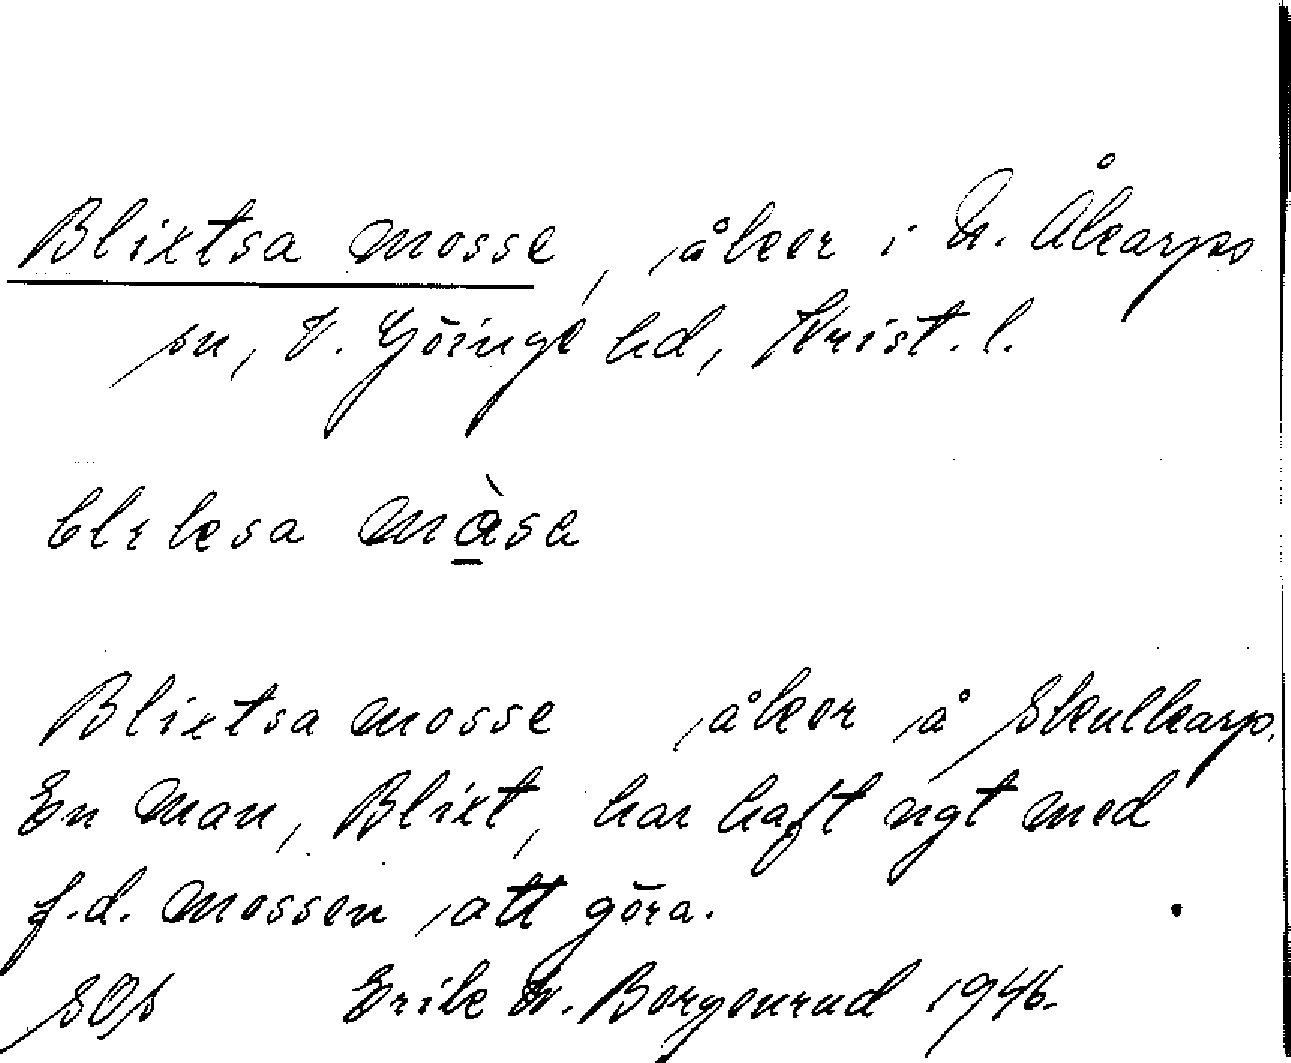 Blixtsa mosse, åker i N. Åkarps
sn, V. Göinge hd, Krist. l.
blɩksa måsa
Blixtsa mosse åker å Skulkarp.
En man, Blixt, har haft ngt med
f.d. mossen att göra.
SOA Erik W. Borgenrud 1946.